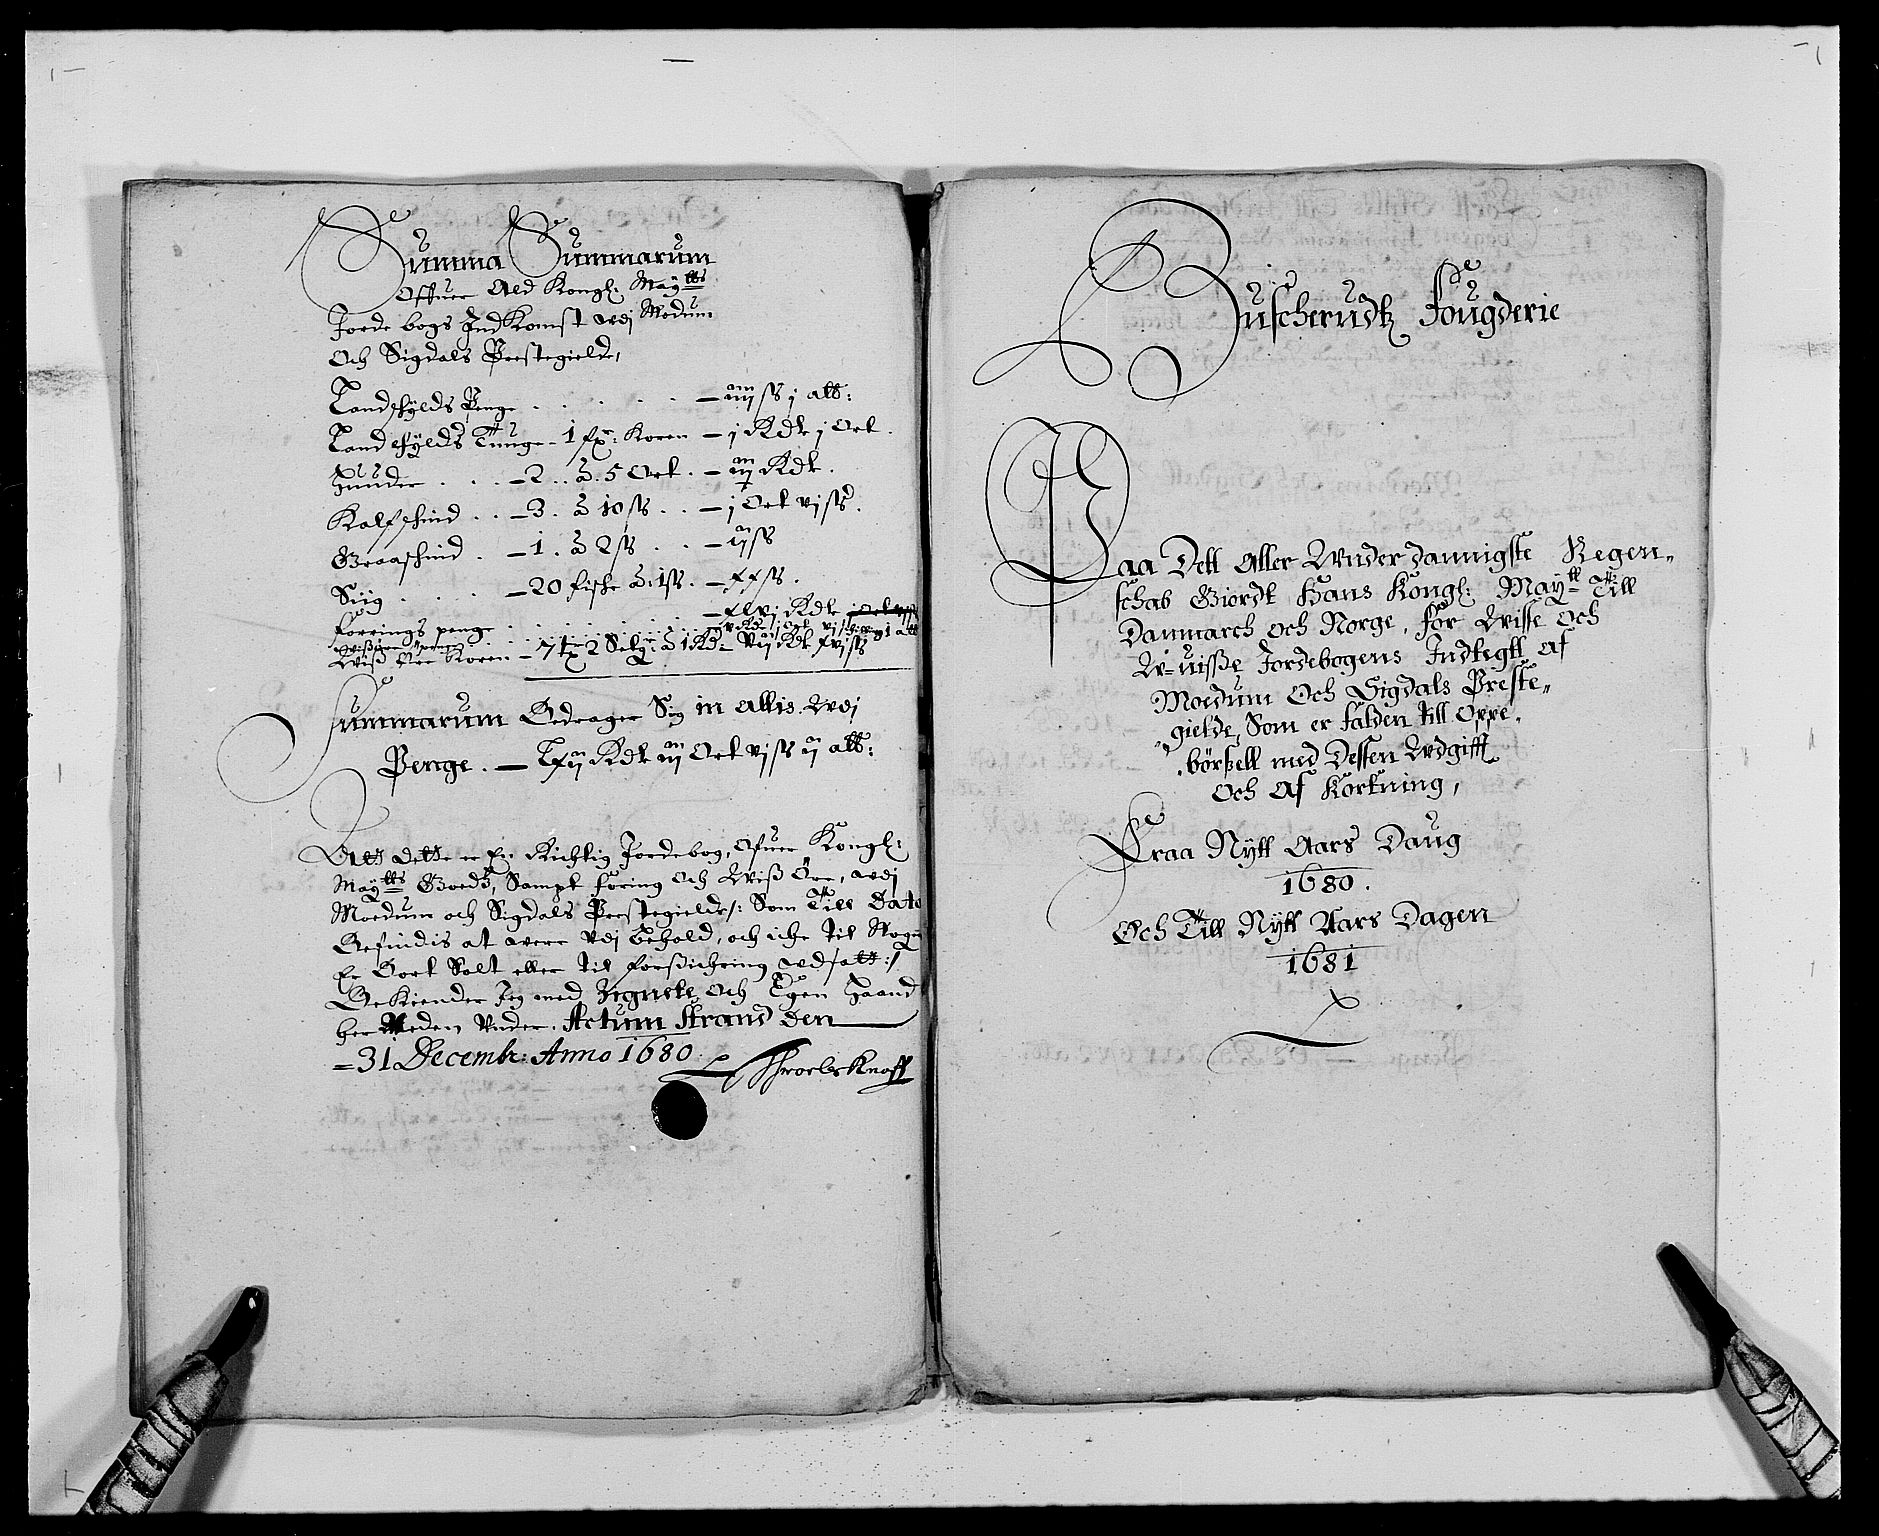 Summa Summarum
Offuer Ald Kongl: Maÿtts
Jorde bogs IndKomst udj Modum
Och Sigdals Prestegielde,
Landschÿlds Penge . . . . . — iiij ſs j alb:
Landschÿlds Tunge - 1 fx: Koren — j Rdr j Ort.
Huuder . . . — 2 . . à . 5 Ort . — ij Rdr.
Kalfschind . . — 3 . à 10 ſs . . — j Ort vj ſs.
Graaschind . — 1 . à 2 ſs . . — ij ſs
Siig . . . . — 20 fiske à 1 ſs. — xx ſs.
Forrings penge . . . . . . — xlvj Rdr
Wiß Öre Koren — 7 tx 2 Set: à 1 Rd:
Summarum Bedrager Sig in allis. Udj
Penge. — Rdr iij Ort vj ſs ij alb:
Att dette er En Richtig Jordebog, Ofuer Kongl:
Maÿtts Goedß, Sampt foring Och Wiß Öre, udj
Moedum och Sigdals Prestegielde/: Som Till Dato
Befindis at were udj behold, och iche til Nogen
Er Bort Solt eller til forsichring udsatt:/
Bekiender Jeg med Zignete Och Egen Haand
her Neden Under. Actum Strand den
= 31 Decembr: Anno 1680
Knoff
Buscherudtz Fougderie
Paa Dett Aller Underdannigste Regen-
schab Giordt Hans Kongl: Maytt Till
Danmarch Och Norge, for Wisse Och
U-uisße Jordebogens Indtegtt af
Moedum Och Sigdals Preste-
gielde, Som er falden till Oppe-
börßell med Dessen Udgifft
Och Af Kortning,
Fraa Nÿtt Aars Daug
1680.
Och Till Nÿtt Aars Dagen
1681